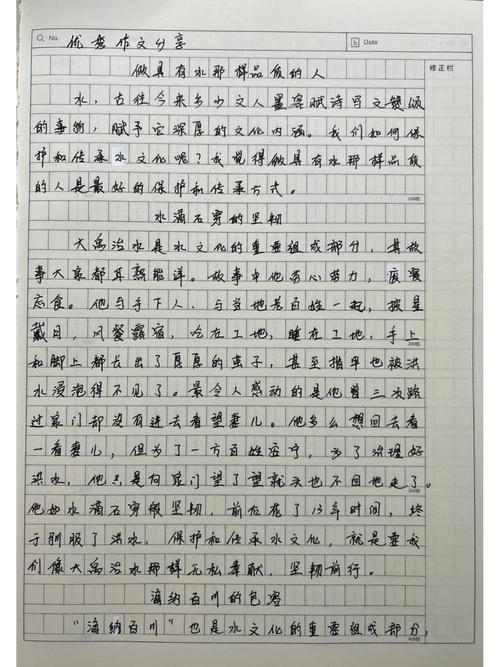 No. 优秀作文分享
Date
修正栏
做具有水那样品质的人
水，古往今来多少文人墨客赋诗写文赞颂
的事物，赋予它深厚的文化内涵。我们如何保
护和传承水文化呢？我觉得做具有水那样品质
的人是最好的保护和传承方式。
水滴石穿的坚韧
大禹治水是水文化的重要组成部分，其故
事大家都耳熟能详。故事中他劳心劳力，废寝
忘食。他与手下人、与当地老百姓一起，披星
戴月，风餐露宿，吃在工地，睡在工地，手上
和脚上都长出了厚厚的茧子，甚至指甲也被洪
水浸泡得不见了。最令人感动的是他曾三次路
过家门却没有进去看望妻儿。他多么想回去看
一看妻儿，但为了一方百姓安宁，为了治理好
洪水，他只是向家门望了望就头也不回地走了。
他如水滴石穿般坚韧，前后花了13年时间，终
于驯服了洪水，保护和传承水文化，就是要我
们像大禹治水那样无私奉献，坚韧前行。
海纳百川的包容
“海纳百川”也是水文化的重要组成部分，